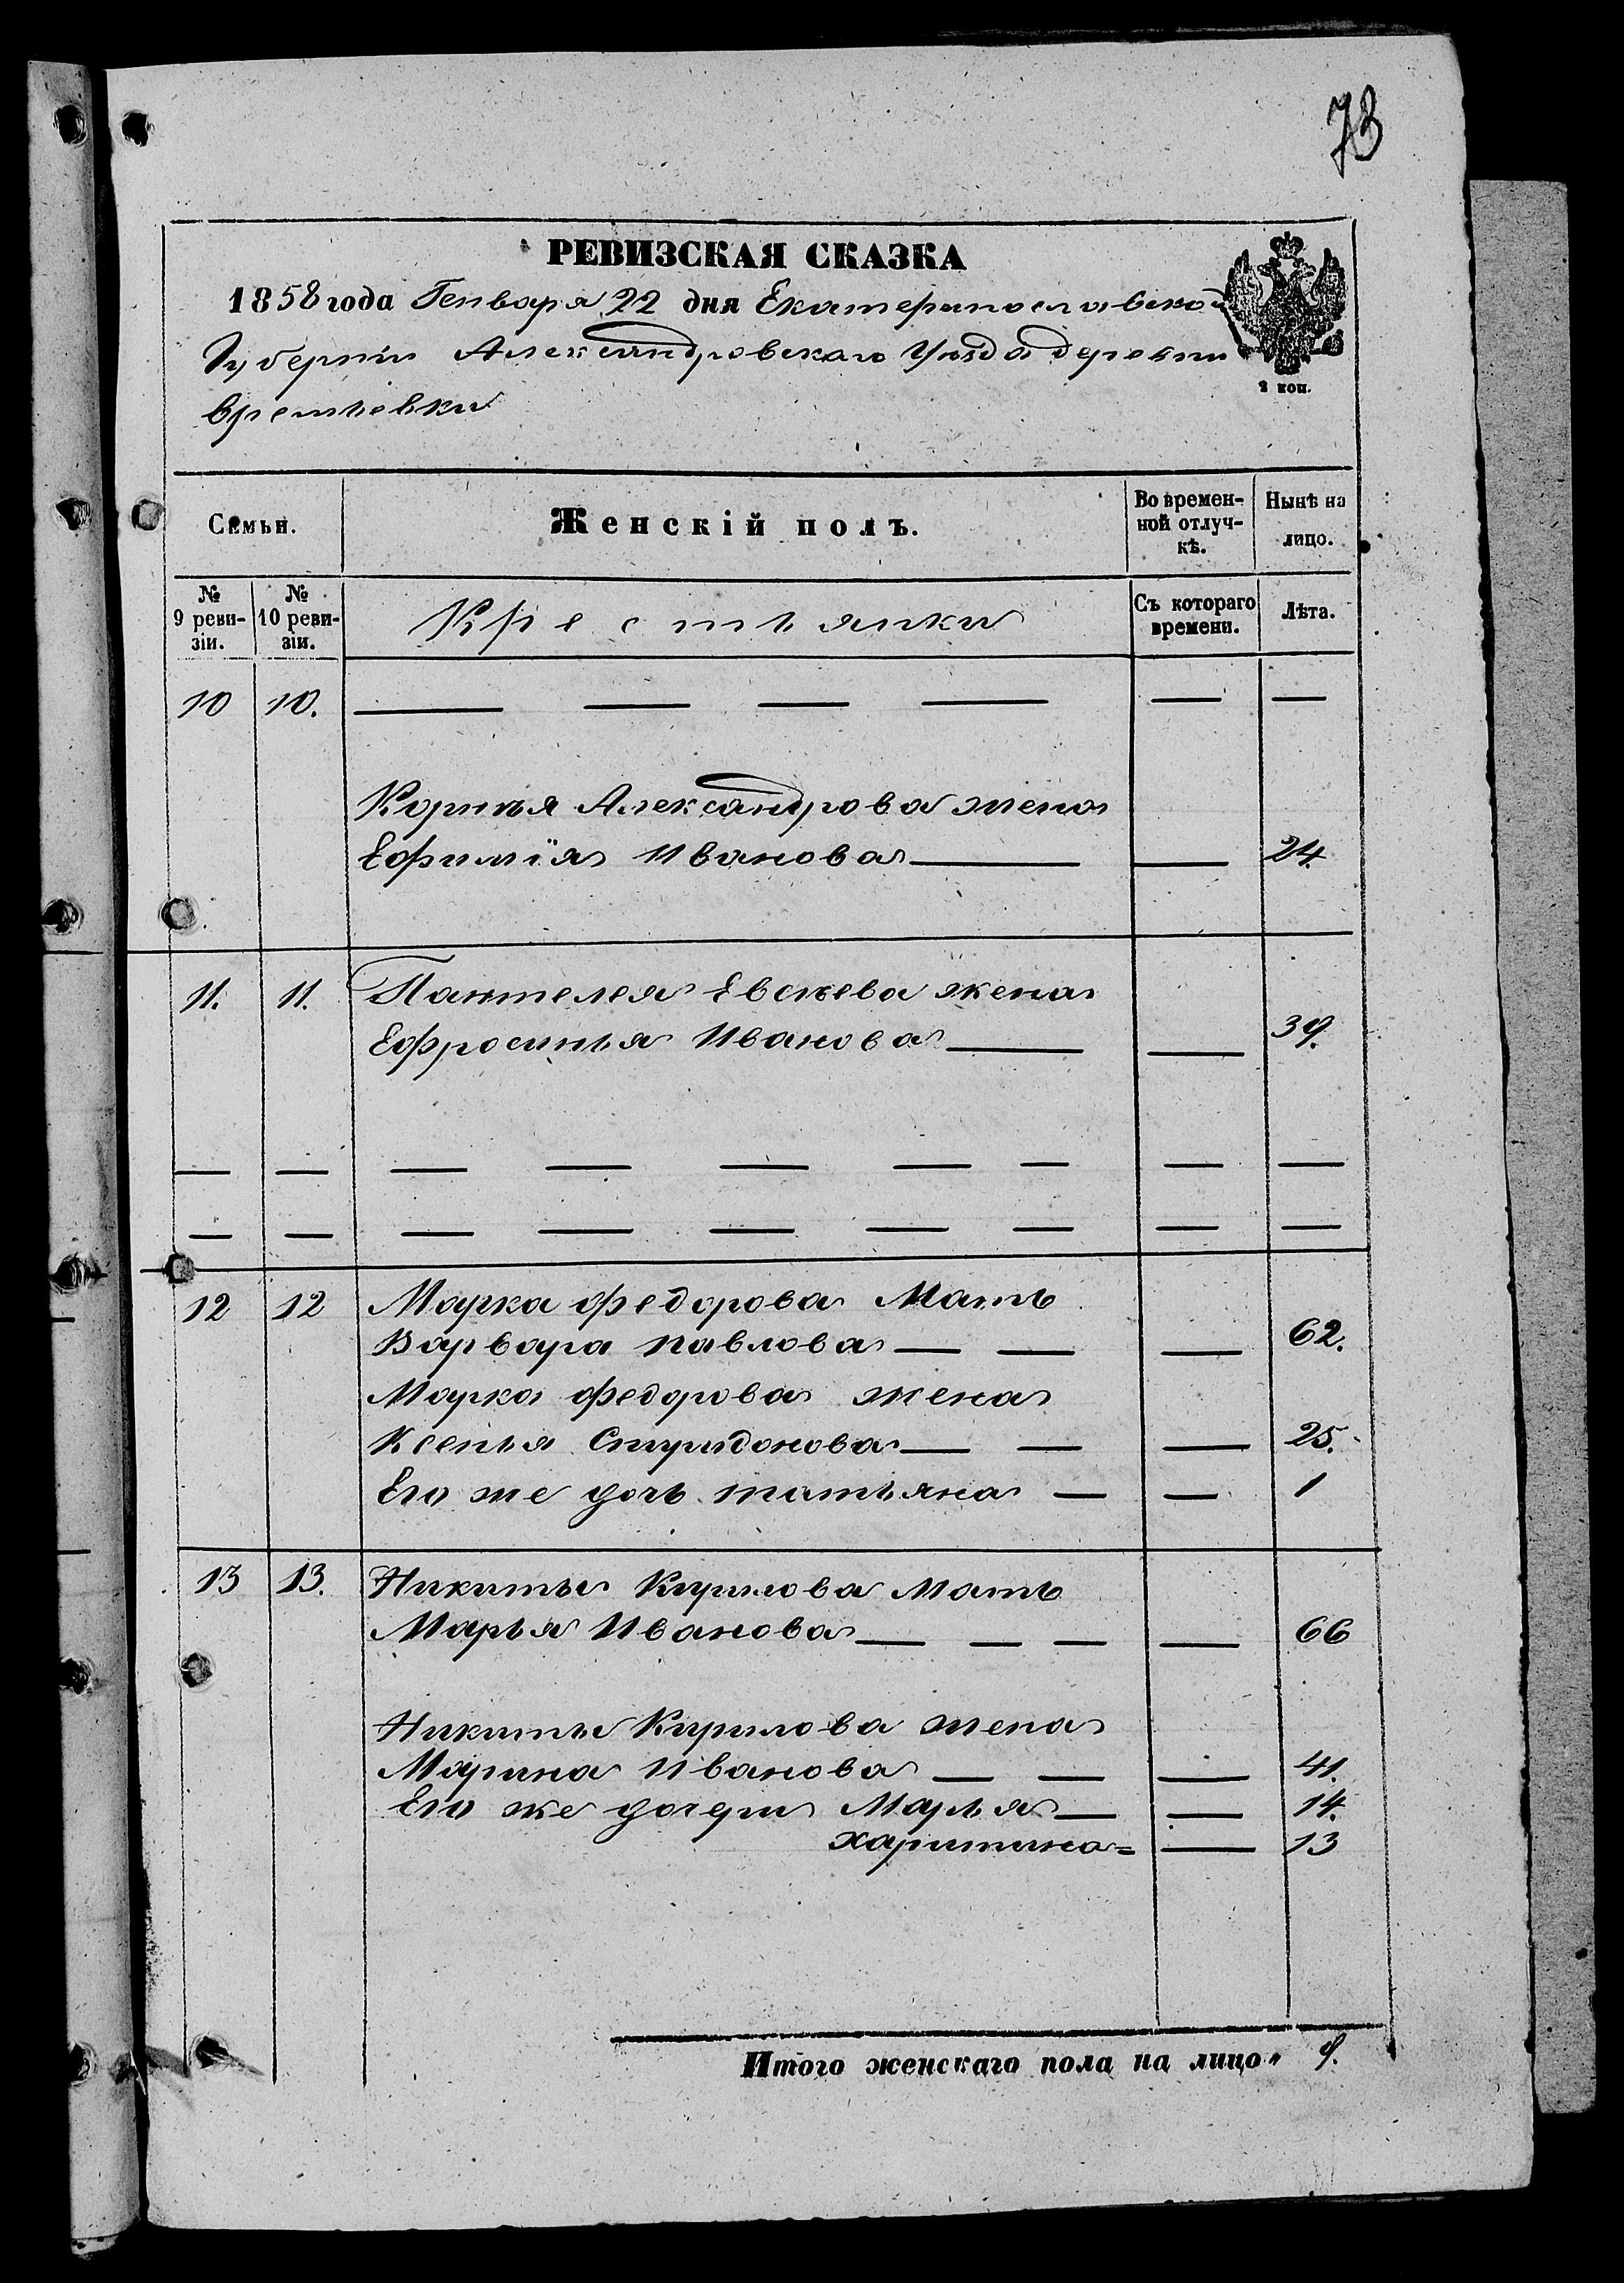 73
РЕВИЗСКАЯ СКАЗКА
1858 года Генваря 22 дня Екатеринославской
Губернiи Александровскаго Уѣзда деревни
Времьевки
2 коп.
Семьи. Женскiй полъ. Во времен-ной отлуч-кѣ. Нынѣ на лицо.
№ 9 реви-зiи. № 10 реви-зiи. Крестьянки Съ котораго времени. Лѣта.
10 10. — — — — — —
Корнѣя Александрова жена
Ефимiя Иванова — — 24.
11. 11. Пантелея Евсѣева жена
Ефросинья Иванова — — 39.
— — — — — — — — —
— — — — — — — — —
12 12 Марка Федорова Мать
Варвара Павлова — — — 62.
Марка Федорова жена
Ксенья Спиридонова — — — 25.
Его же дочь татьяна — — 1
13 13. Никиты Кирилова мать
Марья Иванова — — — — 66
Никиты Кирилова жена
Марина Иванова — — — 41.
Его же дочери Марья — — 14.
харитина = — 13
Итого женскаго пола на лицо 9.